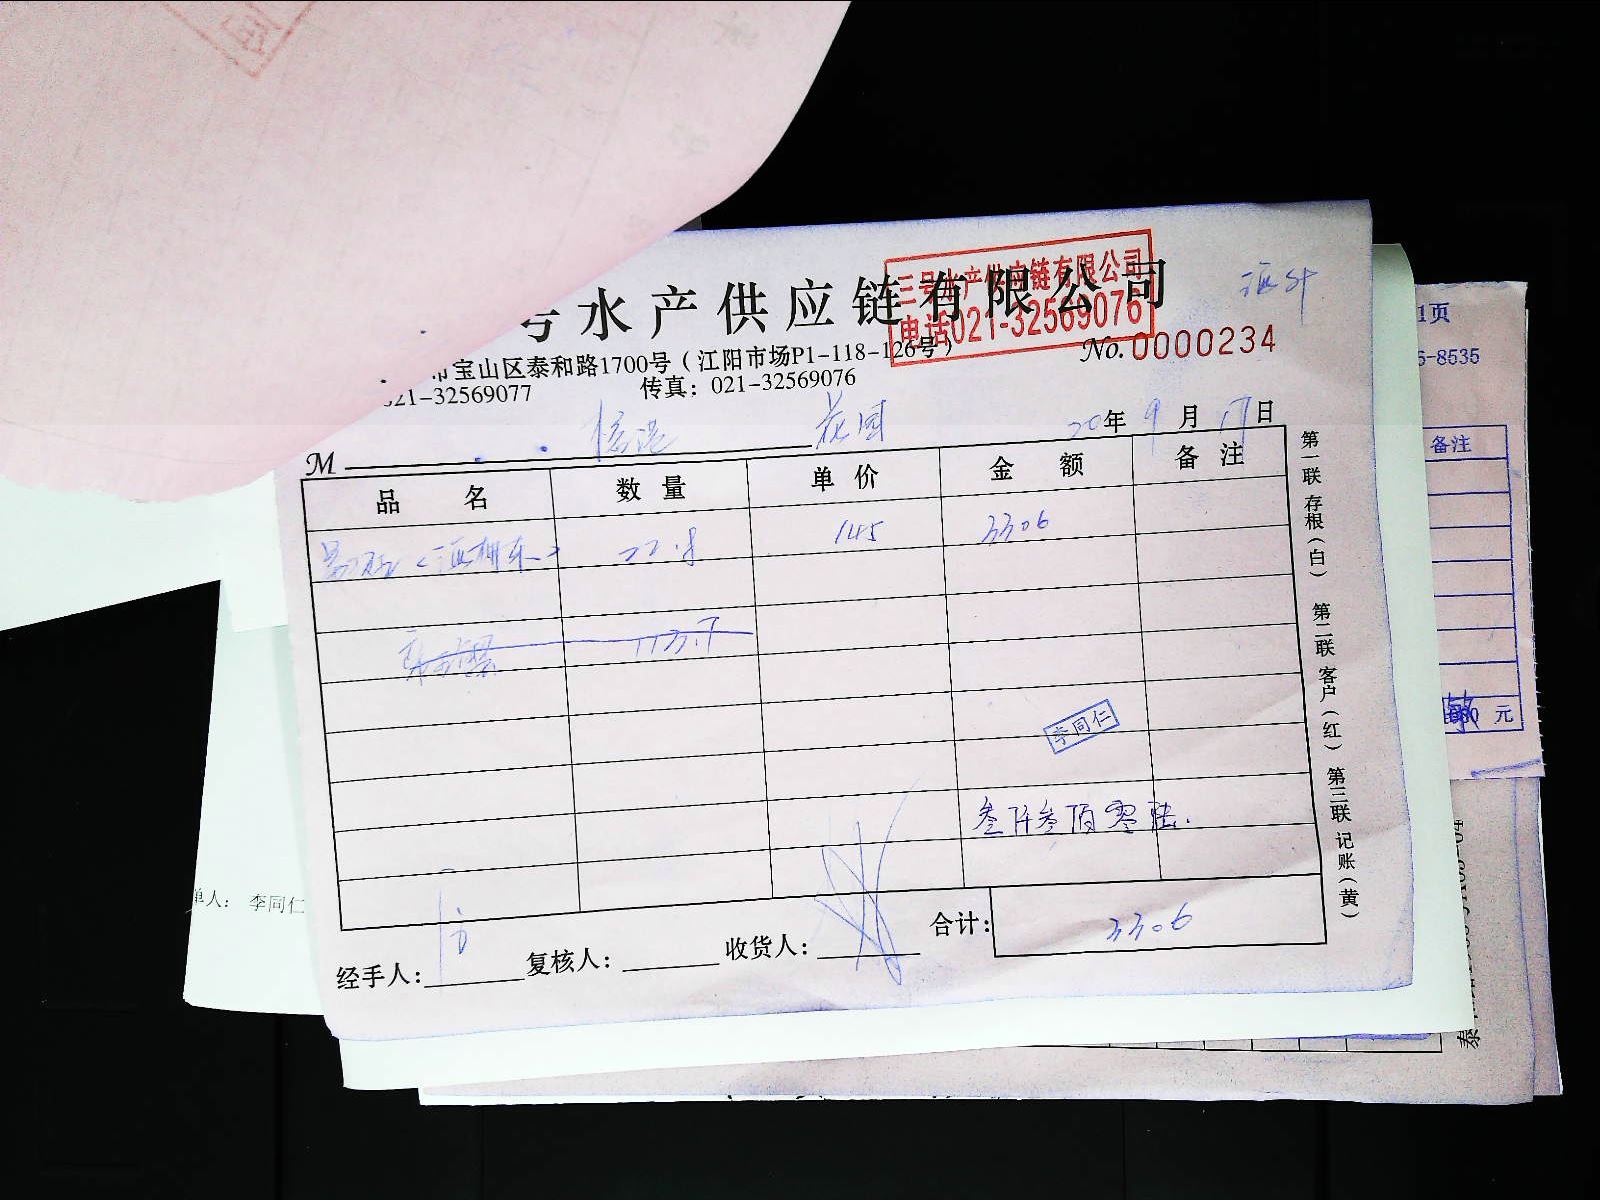 号水产供应链有限公司
三号水产供应链有限公司
电话021-32569076
市宝山区泰和路1700号（江阳市场P1-118-126号）
No.0000234
021-32569077 传真：021-32569076
M 花园 20年9月17日
品名 数量 单价 金额 备注
22.8 145 3306
李同仁
叁仟叁佰零陆.
合计： 3306
经手人： 复核人： 收货人：
第一联 存根（白） 第二联 客户（红） 第三联 记账（黄）
1页
5-8535
备注
元
单人： 李同仁